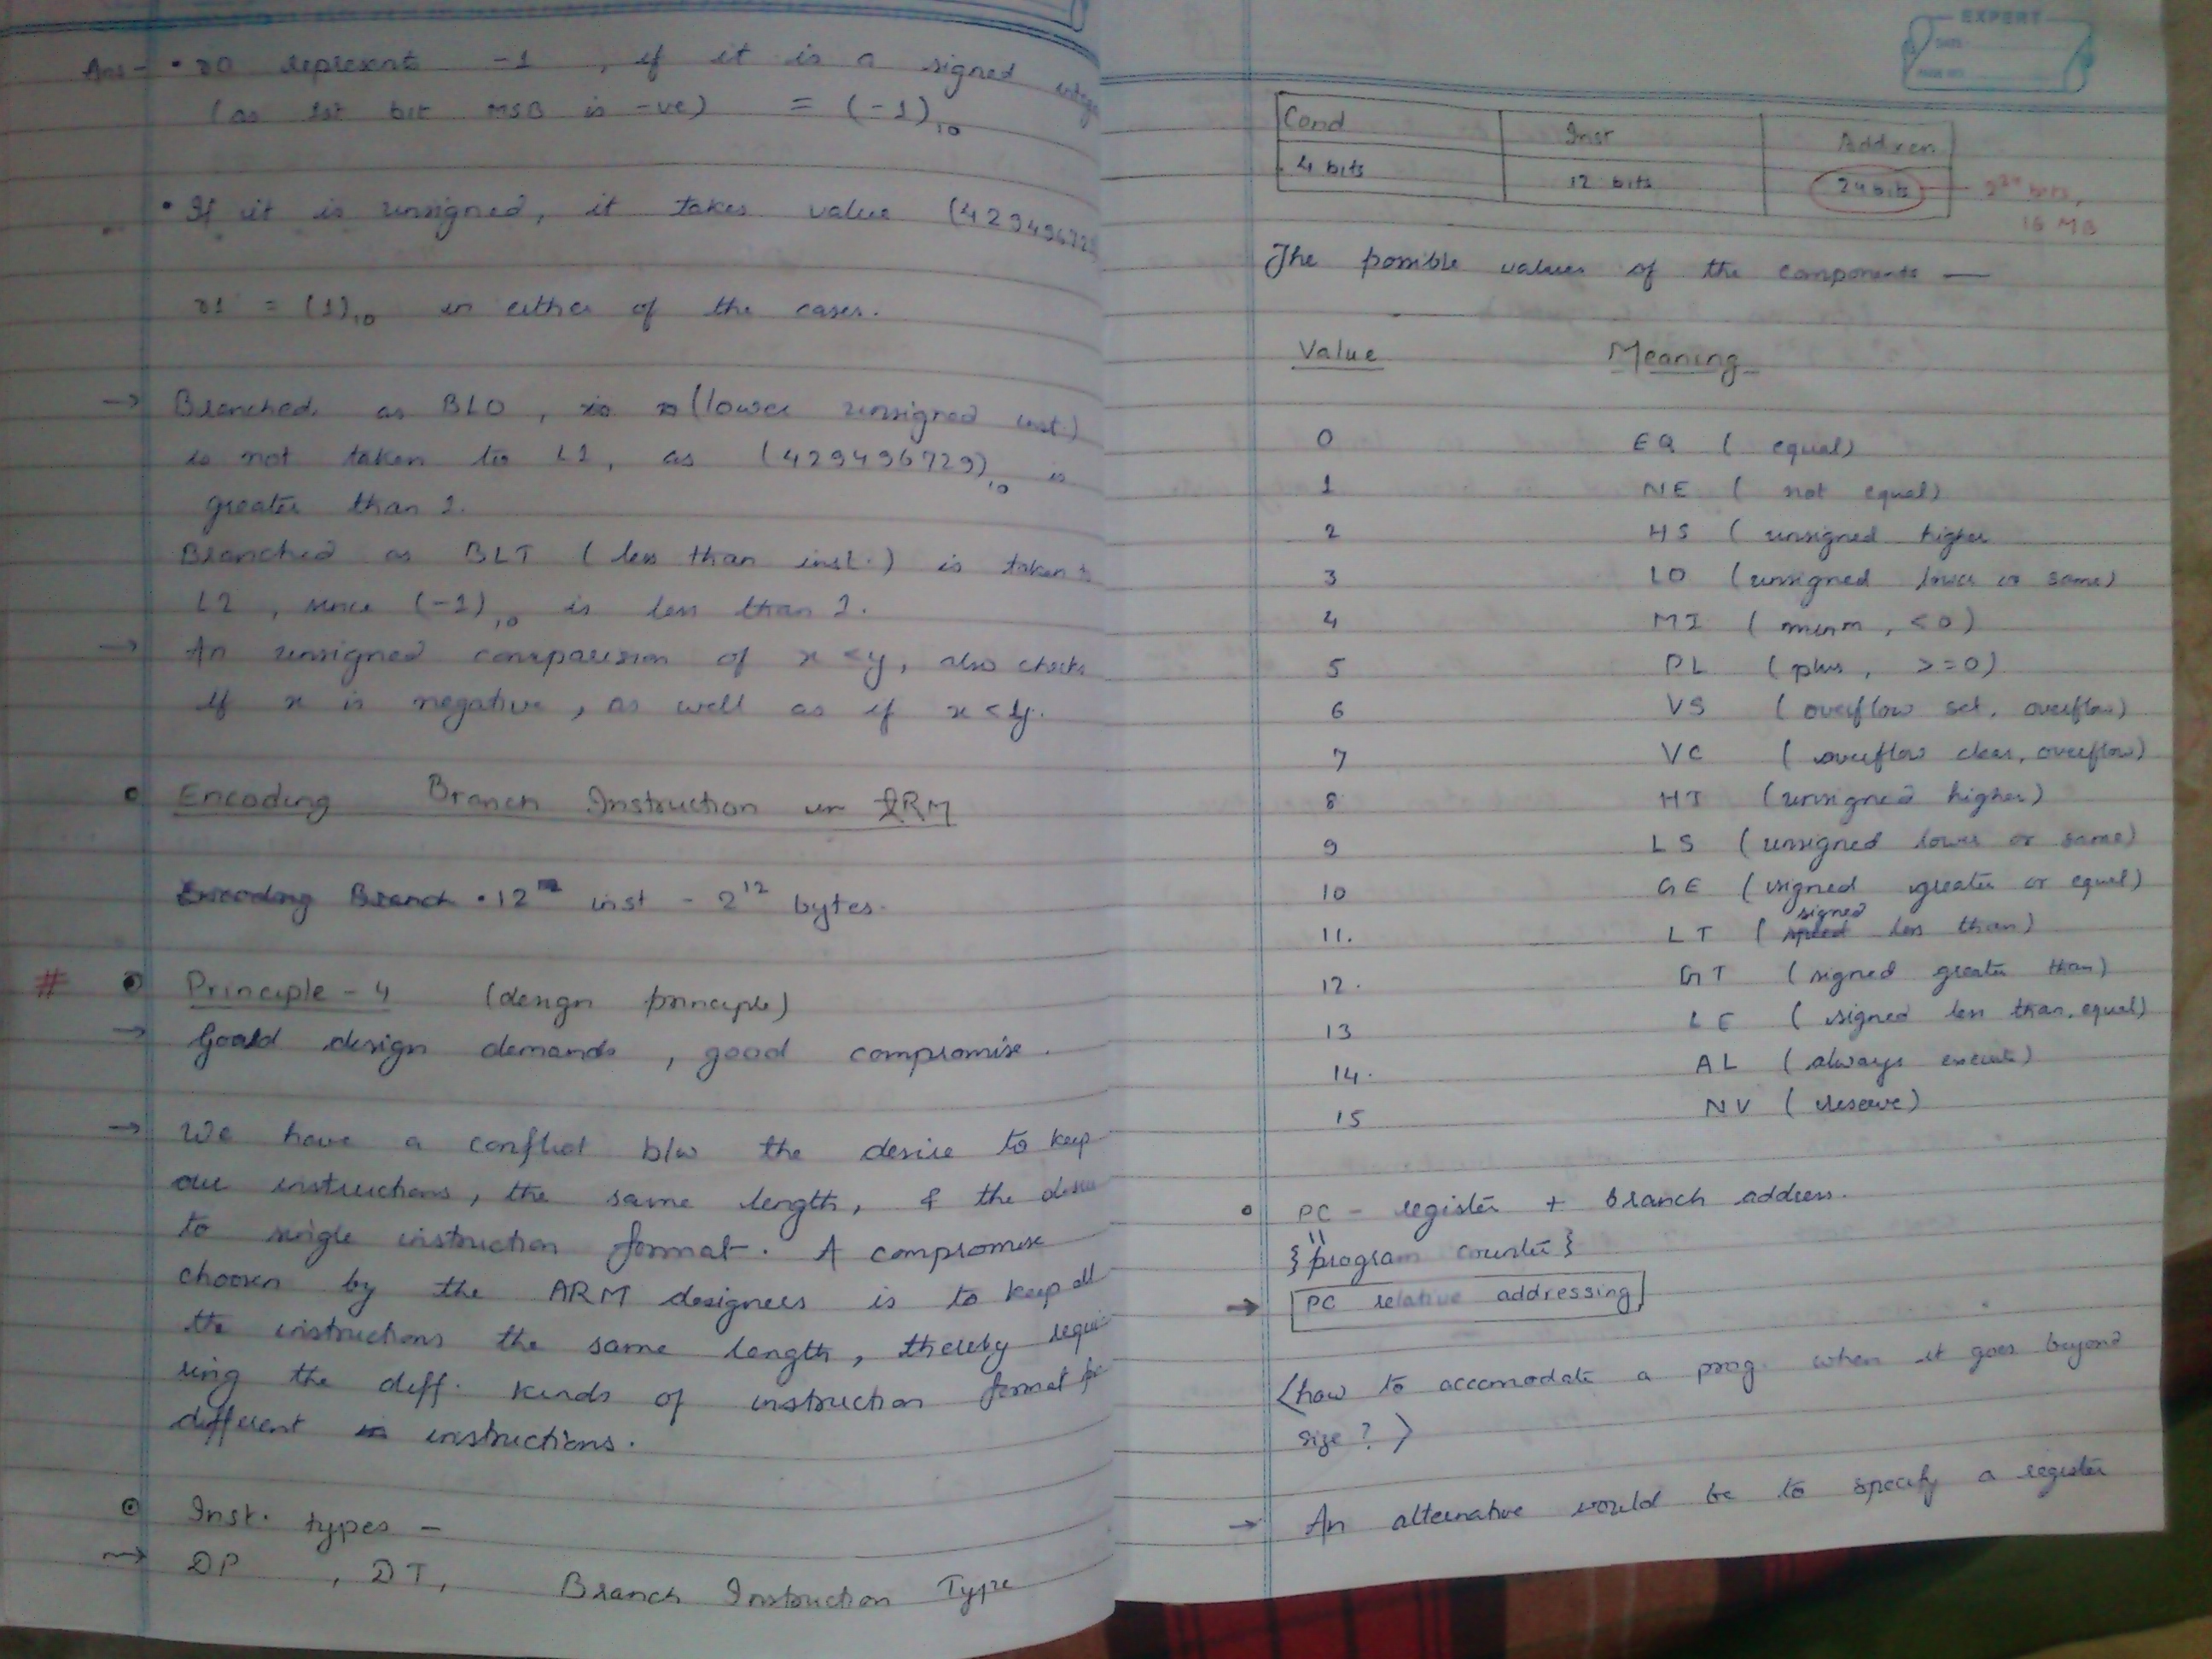 Ans - • r0 represents -1 , if it is a signed
(as 1st bit MSB is -ve) = (-1)10
• If it is unsigned, it takes value (429496729
r1 = (1)10 in either of the cases.
→ Branched as BLO , (lower unsigned inst.)
is not taken to L1, as (429496729)10 is
greater than 1.
Branched as BLT ( less than inst.) is taken to
L2 , since (-1)10 is less than 1.
→ An unsigned comparision of x < y, also checks
if x is negative, as well as if x < y.
Encoding Branch Instruction in ARM
Encoding Branch • 12 inst - 2^12 bytes.
# Principle - 4 (design principle)
→ Good design demands , good compromise .
→ We have a conflict b/w the desire to keep
our instructions, the same length, & the
to single instruction format. A compromise
choosen by the ARM designers is to keep all
the instructions the same length, thereby requi
ring the diff. kinds of instruction format for
different in instructions.
Inst. types -
→ DP , DT, Branch Instruction Type
EXPERT
DATE
PAGE NO.
Cond Instr Address
4 bits 12 bits 24 bits 2^24 bits,
16 MB
The possible values of the components —
Value Meaning
0 EQ ( equal)
1 NE ( not equal)
2 HS ( unsigned higher
3 LO (unsigned lower or same)
4 MI ( , <0)
5 PL ( plus, >=0)
6 VS ( overflow set, overflow)
7 VC ( overflow clear, overflow)
8 HI (unsigned higher)
9 LS (unsigned lower or same)
10 GE (signed greater or equal)
11. LT ( signed less than)
12. GT (signed greater than)
13 LE ( signed less than, equal)
14. AL (always execute)
15 NV ( reserve)
PC - register + branch address.
{program counter}
→ PC relative addressing
<how to accomodate a prog. when it goes beyond
size ? >
→ An alternative would be to specify a register